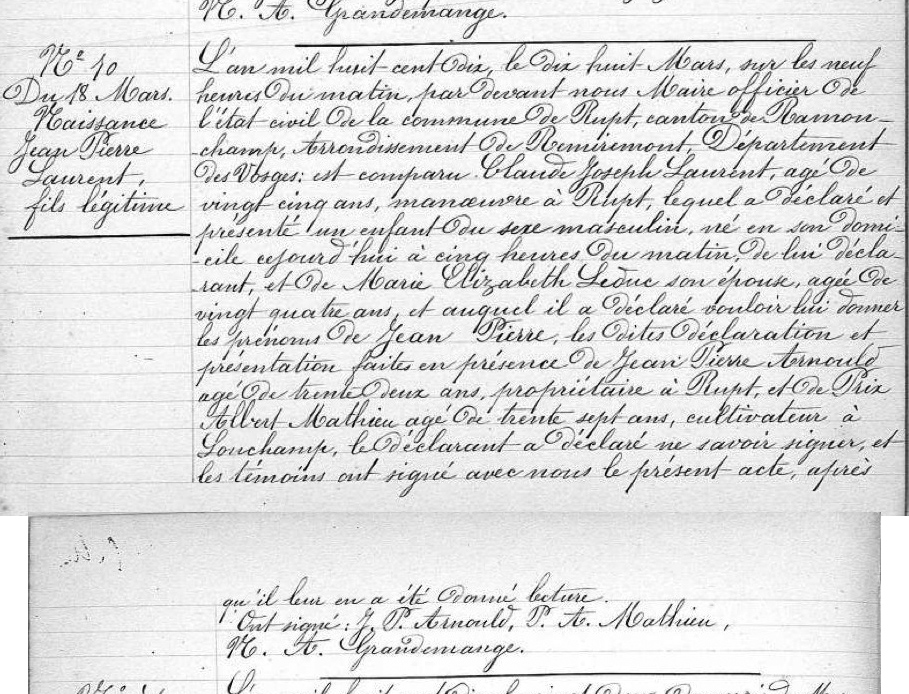 N. A. Grandemange.
Nº 10
Du 18 Mars.
Naissance
Jean Pierre
Laurent,
fils légitime
L'an mil huit-cent dix, le dix huit Mars, sur les neuf
heures du matin, par devant nous Maire officier de
l'état civil de la commune de Rupt, canton de Ramon-
-champ, Arrondissement de Remiremont, Département
des Vosges; est comparu Claude Joseph Laurent, agé de
vingt cinq ans, manœuvre à Rupt, lequel a déclaré et
présenté un enfant du sexe masculin, né en son domi-
-cile cejourd'hui à cinq heures du matin, de lui décla-
-rant, et de Marie Elizabeth Leduc son épouse, agée de
vingt quatre ans, et auquel il a déclaré vouloir lui donner
les prénoms de Jean Pierre, les dites déclaration et
présentation faites en présence de Jean Pierre Arnould
agé de trente deux ans, propriétaire à Rupt, et de Prix
Albert Mathieu agé de trente sept ans, cultivateur à
Lonchamp, le déclarant a déclaré ne savoir signer, et
les témoins ont signé avec nous le présent acte, après
qu'il leur en a été donné lecture.
Ont signé: J. P. Arnould, P. A. Mathieu,
N. A. Grandemange.